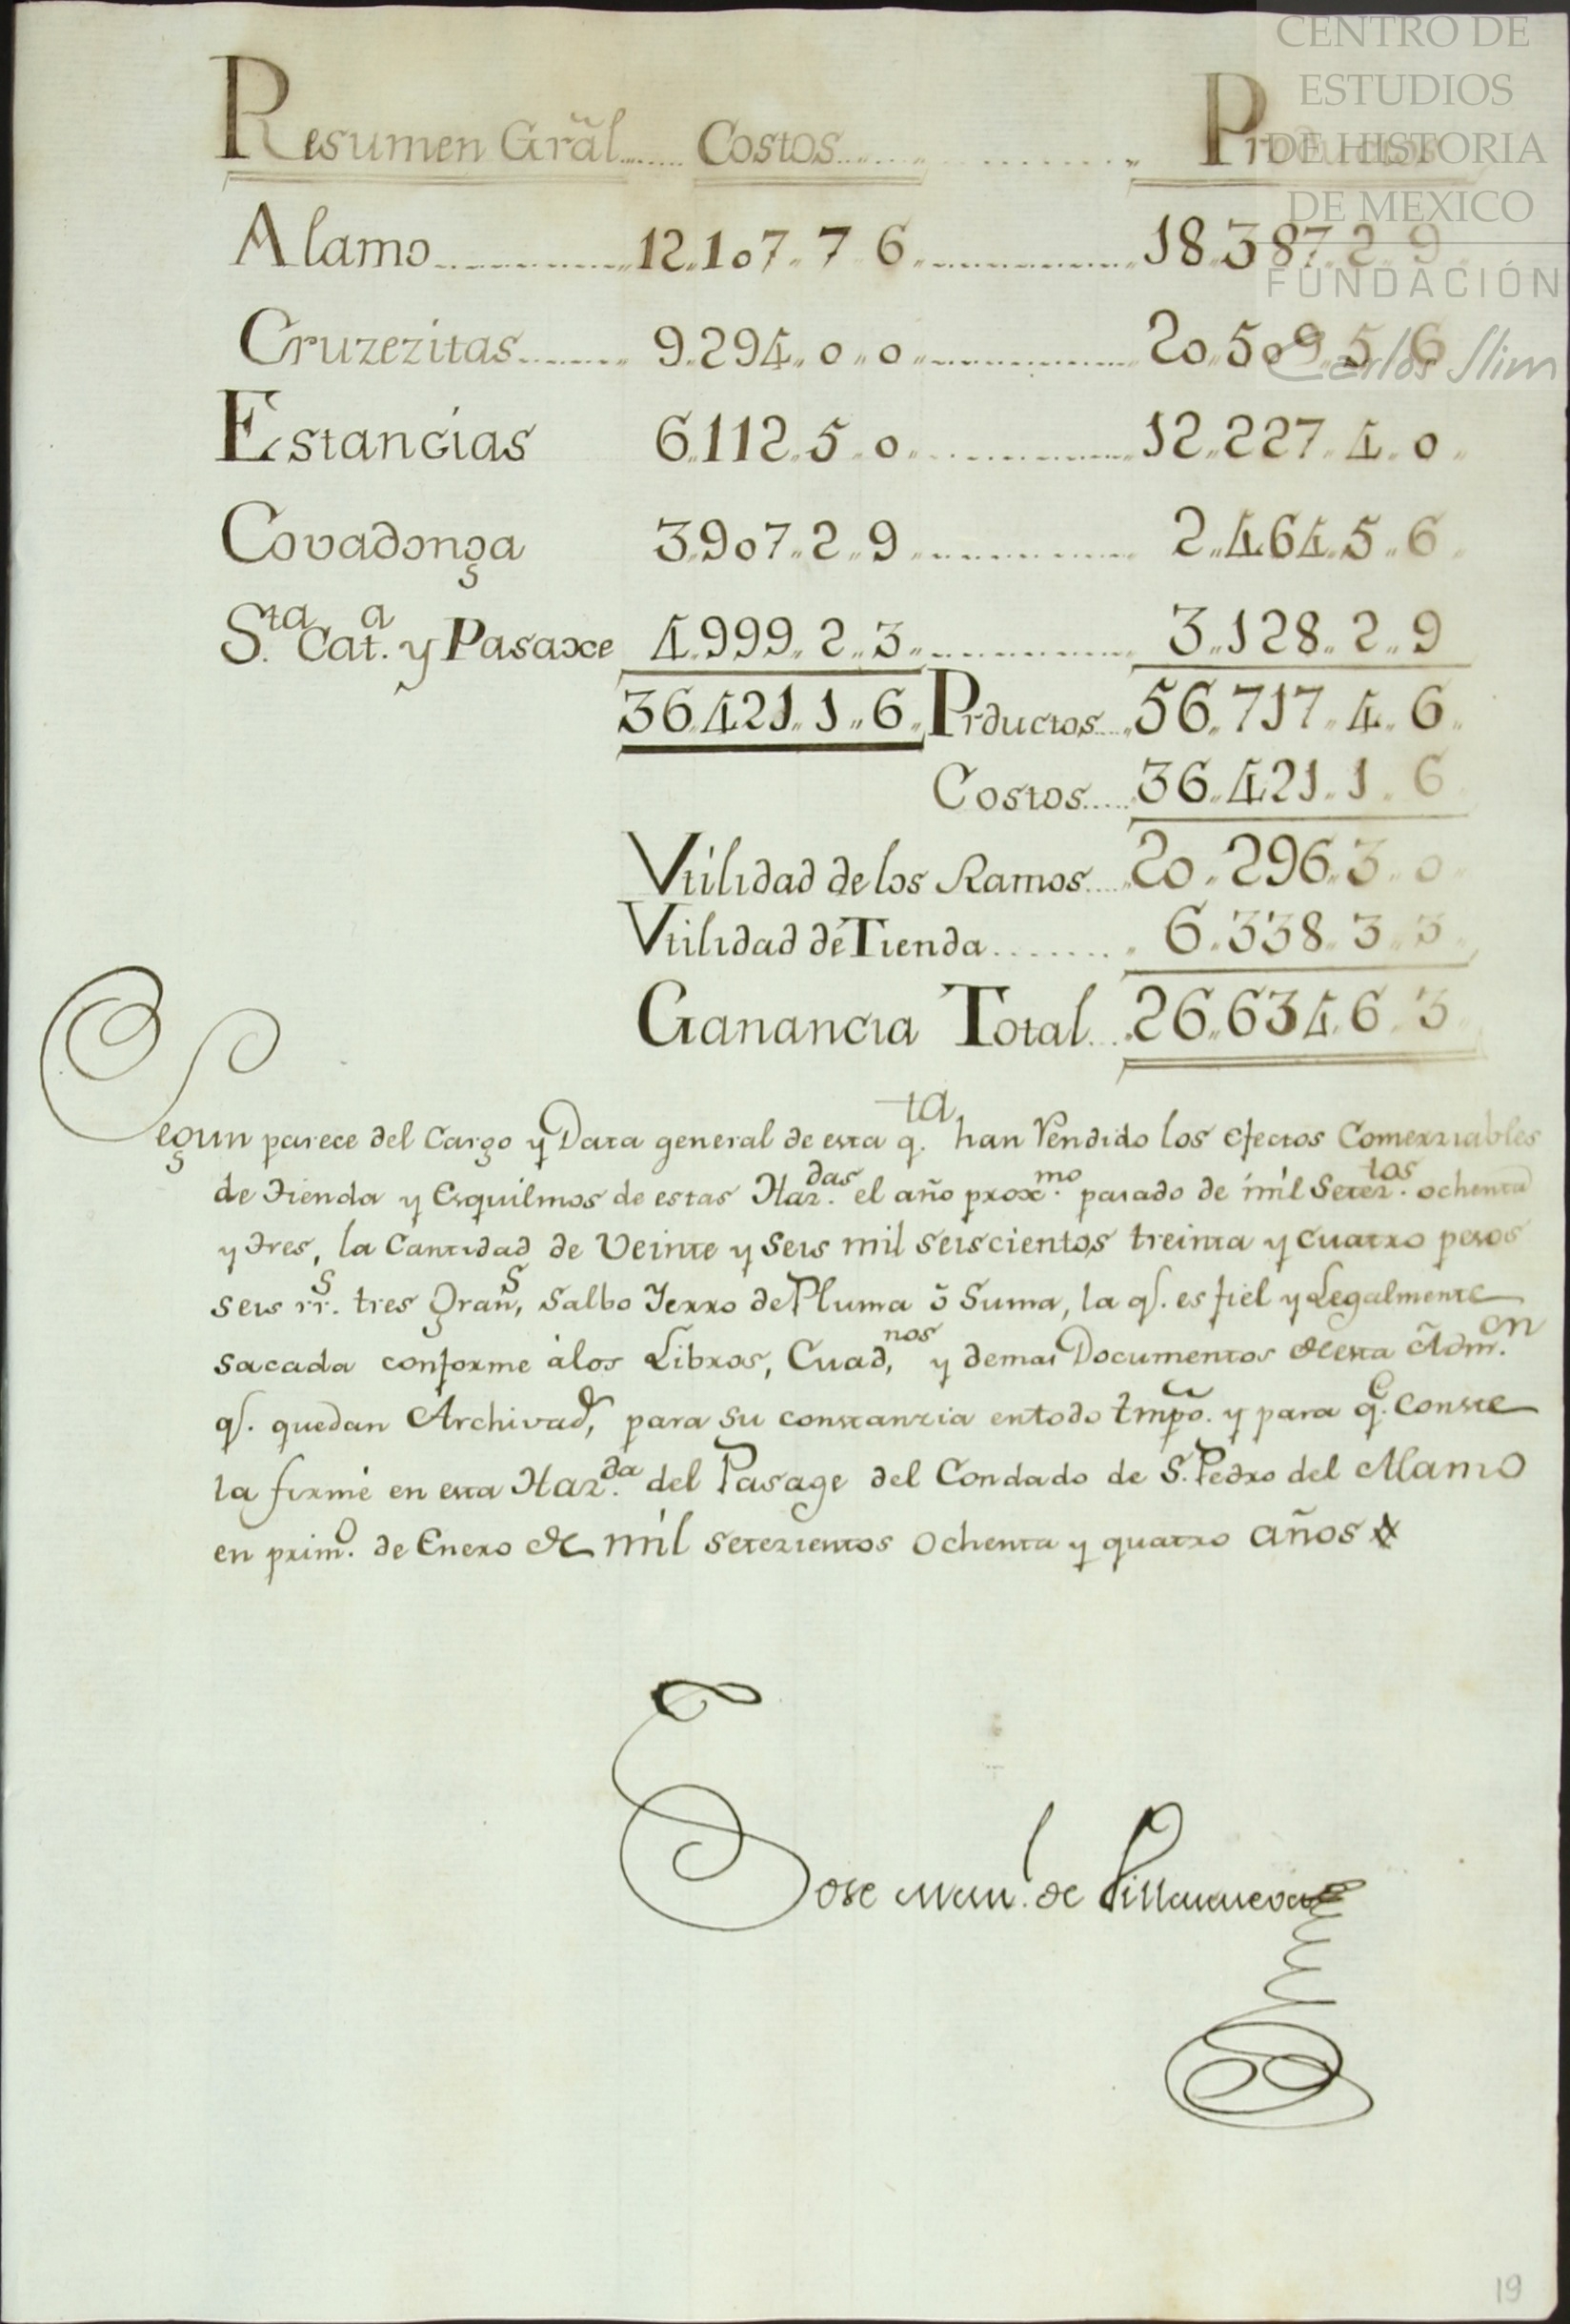 CENTRO DE
ESTUDIOS
DE HISTORIA
DE MEXICO
FUNDACIÓN
Carlos Slim
Resumen Grãl....... Costos................ Productos
Alamo............ 12.,107,,7,,6,............ 18,,387,,2,,9
Cruzezitas....... 9,,294,,0,,0,............ 20,,509,,5,,6
Estancias 6,,112,,5,,0,............ 12,,227,,4,,0,,
Covadonga 3,,907,,2,,9,............ 2,,464,,5,,6,,
S.ta Cat.a y Pasaxe 4,,999,,2,,3,............ 3,,128,,2,,9
36,,421,,1,,6,, Prductos.... 56,,717,,4,,6,,
Costos..... 36,,421,,1,,6
Vtilidad de los Ramos.... 20,,296,,3,,0,,
Vtilidad de Tienda........ 6,,338,,3,,3,,
Ganancia Total... 26,,634,,6,,3,,
Segun parece del Cargo y Data general de esta q.ta han Vendido los efectos Comerziables
de tienda y Esquilmos de estas Haz.das el año prox.mo pasado de mil Setez.tos ochenta
y tres, la Cantidad de Veinte y Seis mil seiscientos treinta y cuatro pesos
seis rr.s tres Gran,s Salbo Yerro de Pluma õ Suma, la q. es fiel y Legalmente
sacada conforme álos Libros, Cuad,nos y demas Documentos de esta Adm.on
q. quedan Archivad,os para su constanzia entodo tmpo. y para q.e Conste
la firmé en esta Haz.da del Pasage del Condado de S. Pedro del Alamo
en prim.o de Enero de mil setezientos ochenta y quatro años
Jose Man.l de Villanueva
19